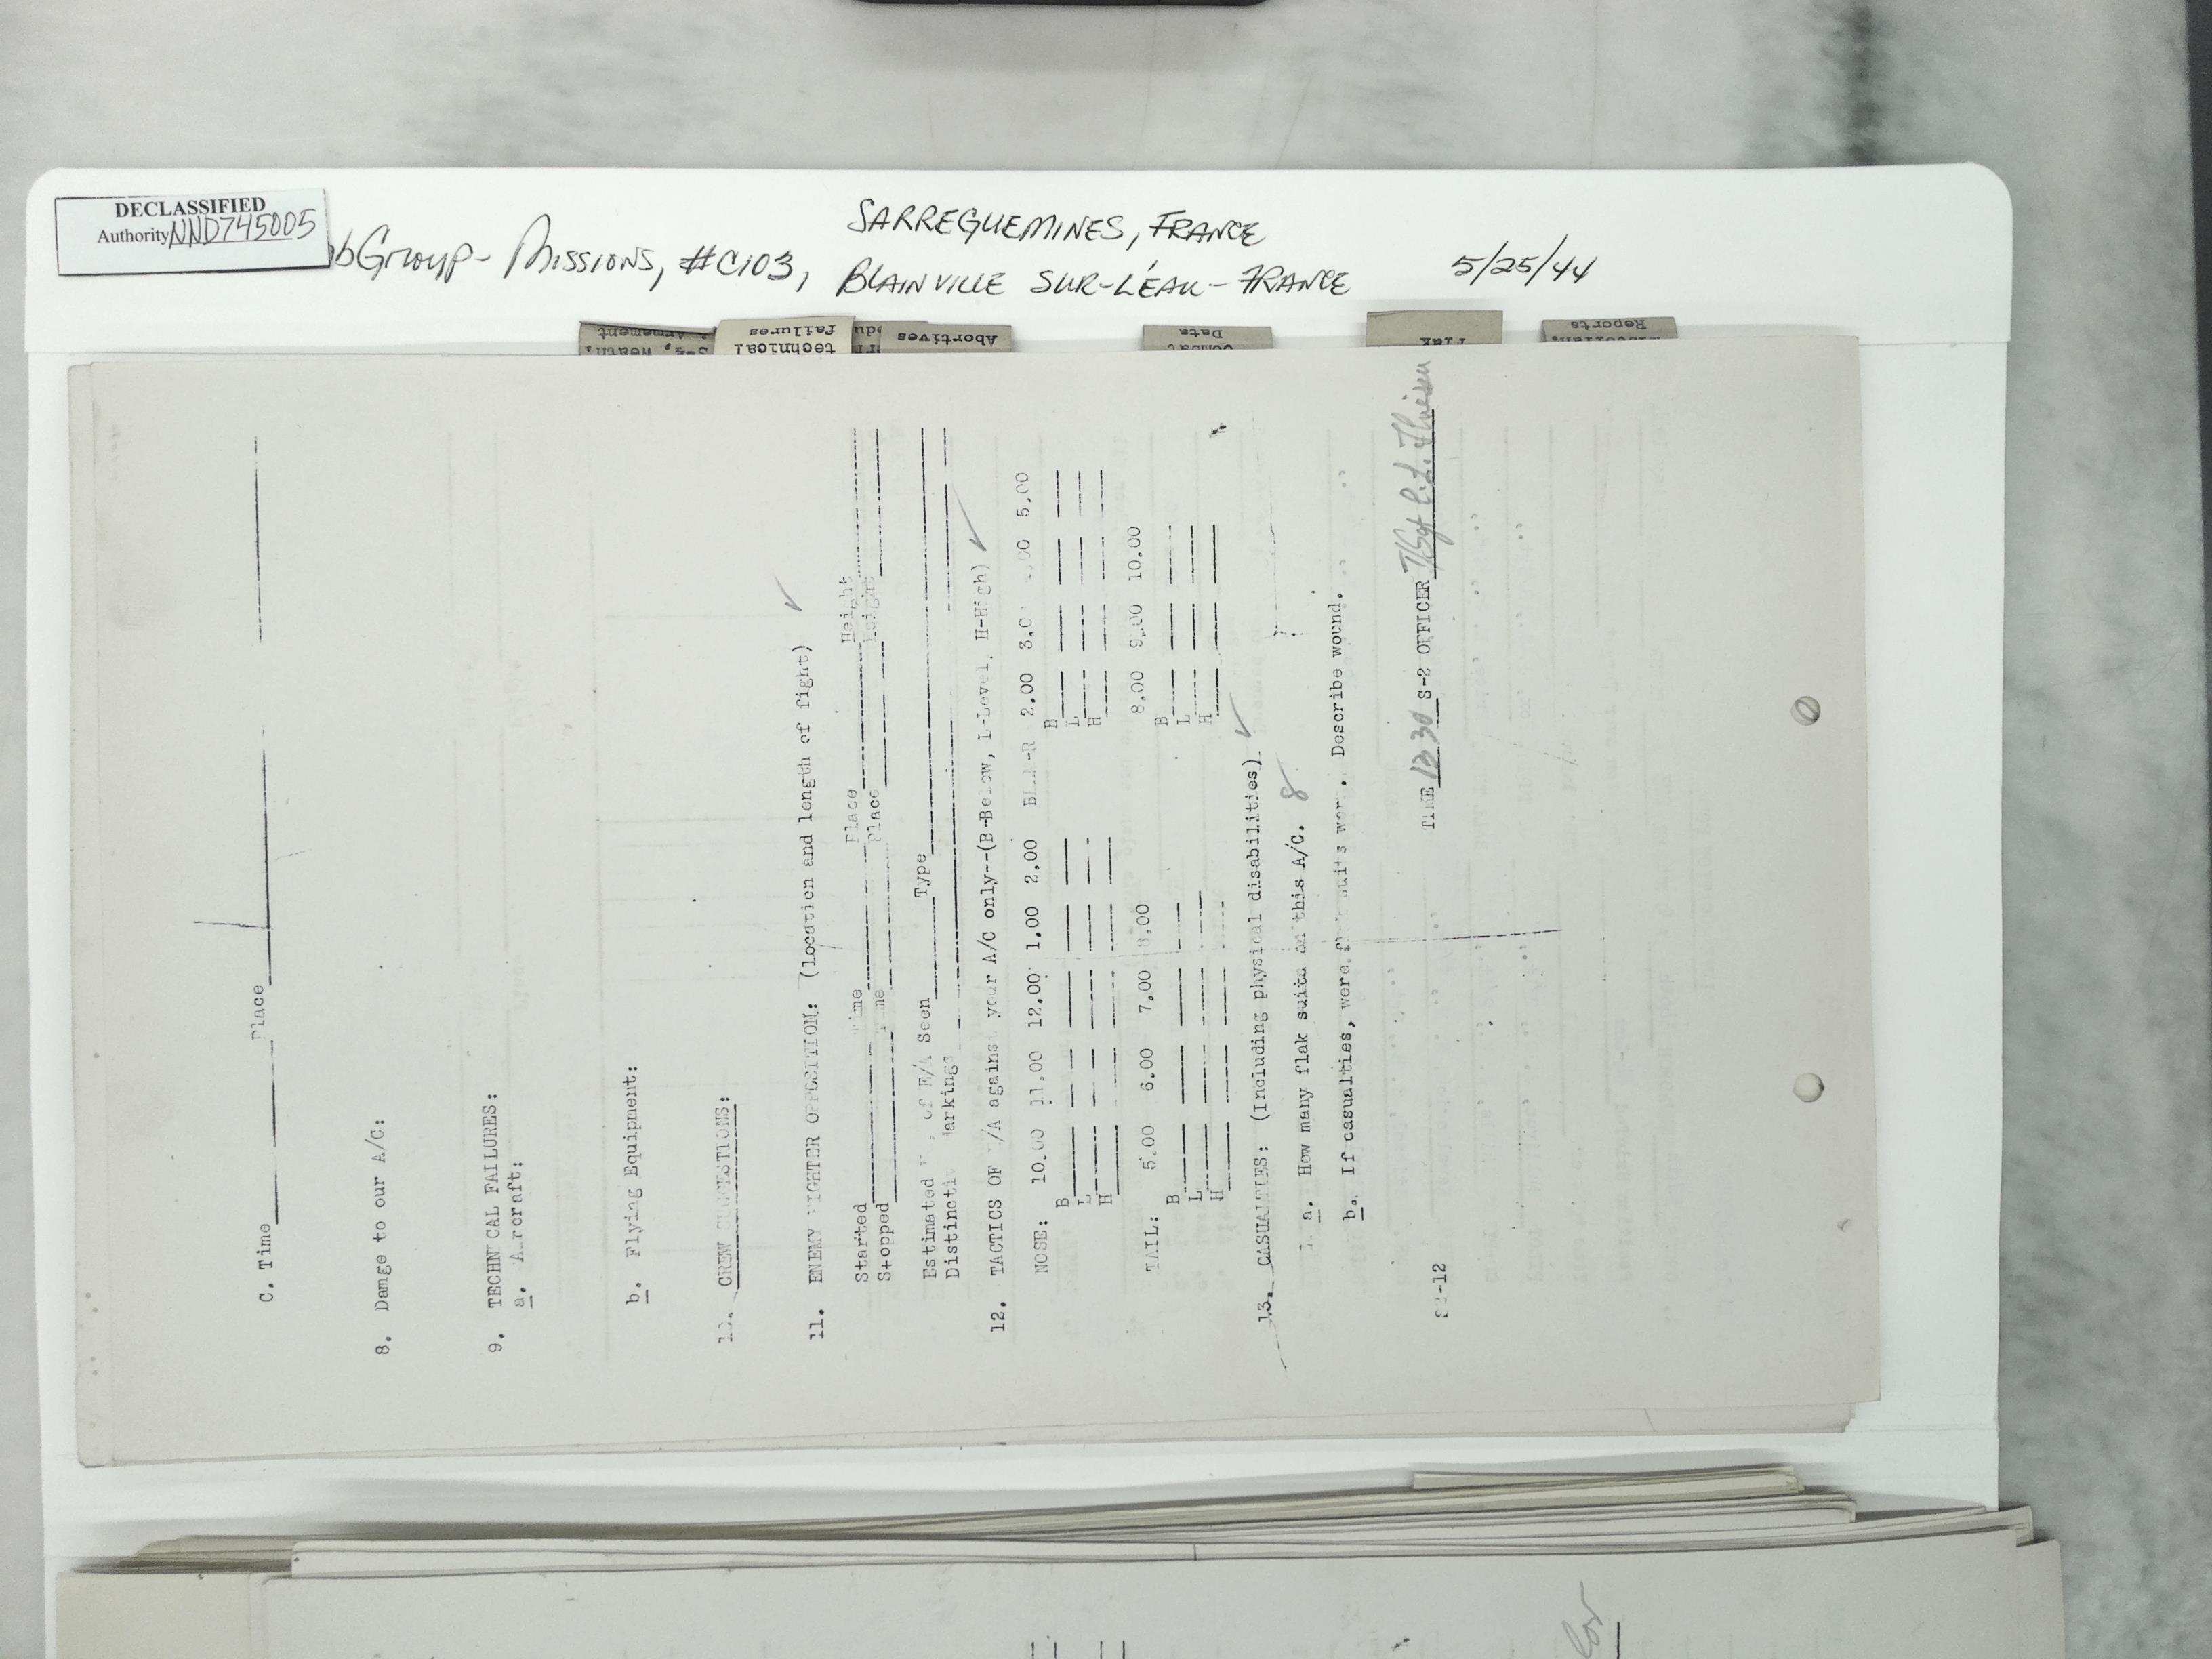 DECLASSIFIED
Authority NND745005
Group - Missions, #C103,
SARREGUEMINES, FRANCE
BLAINVILLE SUR-L'EAU - FRANCE
5/25/44
Armement
S-2, Weath.
failures
technical
Abortives
Data
Combat
Flak
Reports
C. Time Place
8. Damge to our A/C:
9. TECHNICAL FAILURES:
a. Aircraft:
b. Flying Equipment:
CREW SUGGESTIONS:
11. ENEMY FIGHTER OPPOSITION: (location and length of fight)
Started Time Place Height
Stopped Time Place Height
Estimated of E/A Seen Type
Distinctive Markings
12. TACTICS OF E/A against your A/C only--(B-Below, L-Level, H-High)
NOSE: 10.00 11.00 12.00 1.00 2.00 2.00 3.00 5.00
B B
L L
H H
TAIL: 5.00 6.00 7.00 8.00 8.00 9.00 10.00
B B
L L
H H
13. CASUALTIES: (Including physical disabilities).
a. How many flak suits on this A/C. 8
b. If casualties, were flak suits worn. Describe wound.
-12 TIME 1230 S-2 OFFICER T/Sgt